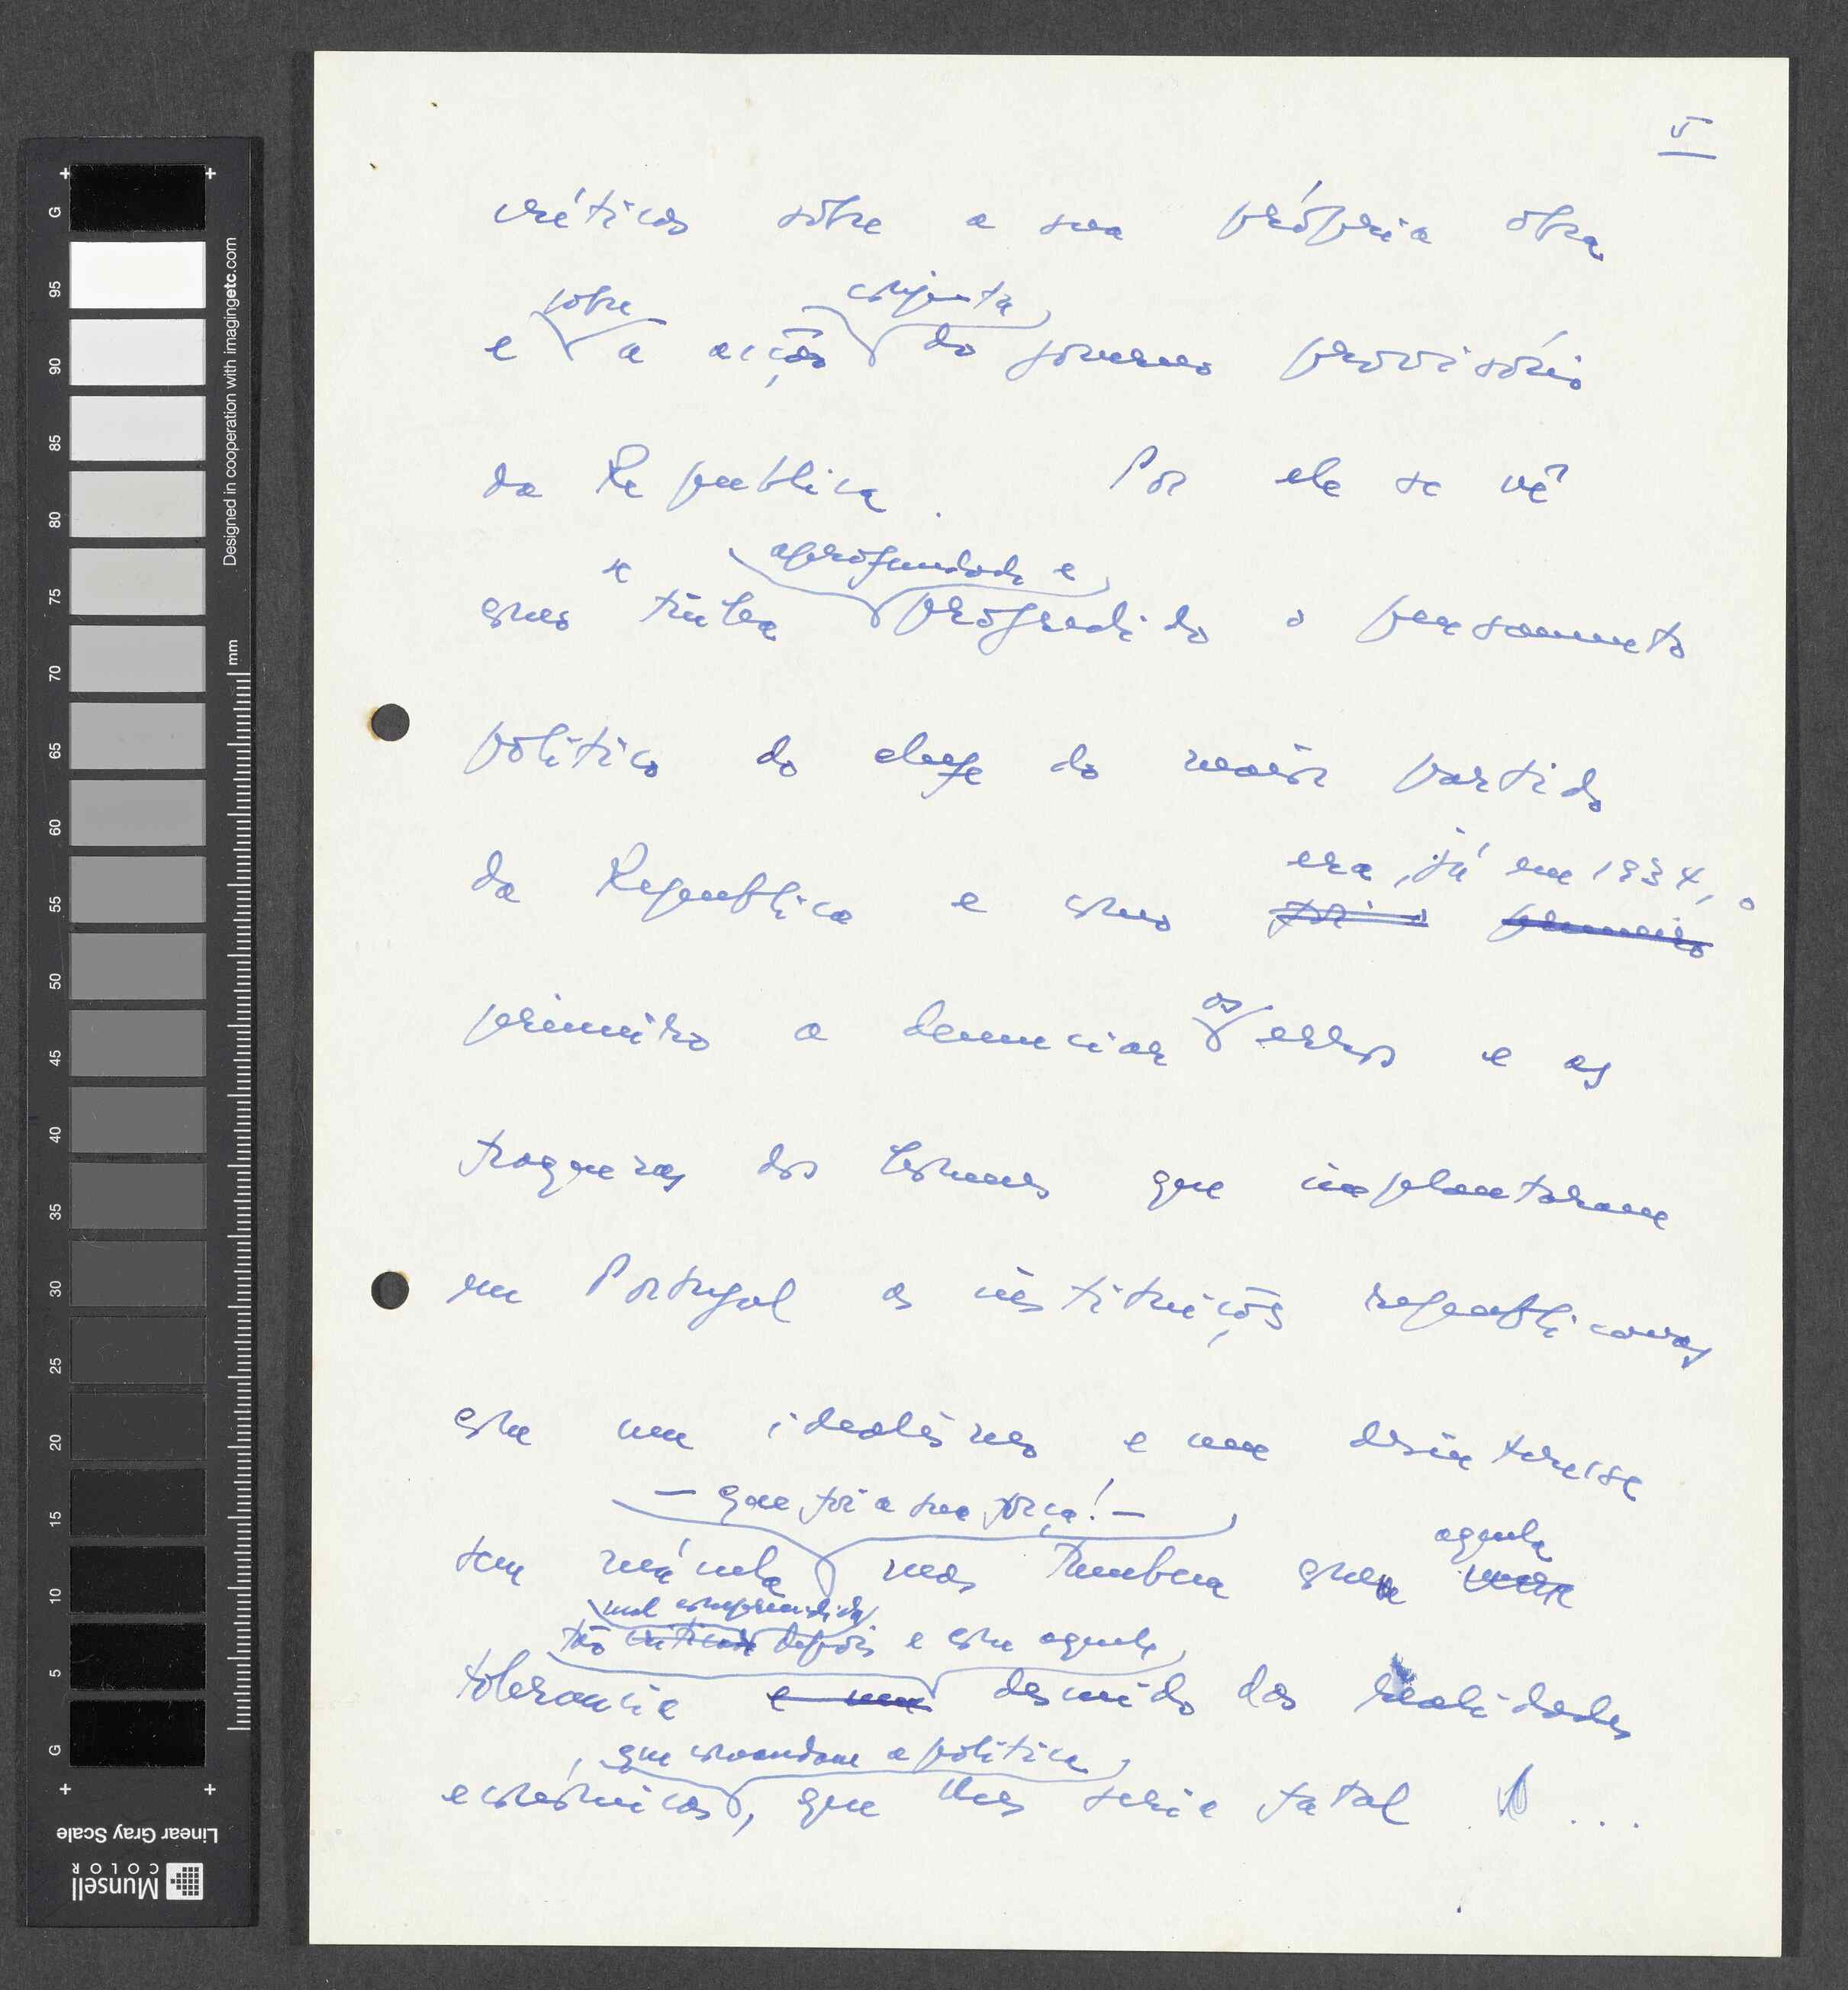 5
críticas sôbre a sua própria obra
sobre conjunta
e a acção do governo provisório
da Republica. Por ele se vê
se aprofundado e
como tinha progredido o pensamento
politico do chefe do maior partido
era, já em 1934, o
da Republica e como foi o primeiro
primeiro a denunciar os erros e as
fraquezas dos homens que implantaram
em Portugal as instituições republicanas
com um idealismo e um desinteresse
— que foi a sua força! —
aquela
sem mácula mas tambem com uma
mal compreendida
tão criticada depois e com aquele
tolerancia e um descuido das realidades
que comandam a politica
económicas, que lhes seria fatal ...
G
95
90
85
80
75
70
65
60
55
50
45
40
35
30
25
20
15
10
5
G
mm
Designed in cooperation with imagingetc.com
Linear Gray Scale
Munsell
COLOR